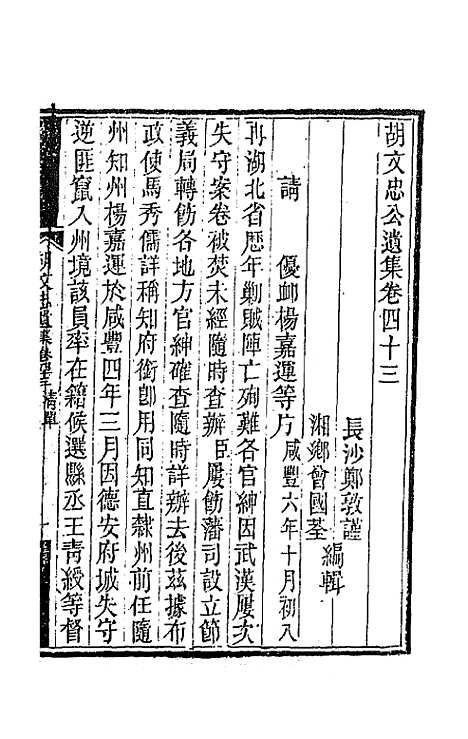 胡文忠公遺集卷四十三
長沙鄭敦謹
湘鄉曾國荃
編輯
請　優卹楊嘉運等片咸豐六年十月初八
再湖北省歷年剿賊陣亡殉難各官紳因武漢屢次
失守案卷被焚未經隨時查辦臣屢飭藩司設立節
義局轉飭各地方官紳確查隨時詳辦去後茲據布
政使馬秀儒詳稱知府銜卽用同知直隸州前任隨
州知州楊嘉運於咸豐四年三月因德安府城失守
逆匪竄入州境該員率在籍候選縣丞王青綬等督
胡文忠遺集卷四十三 請單
一